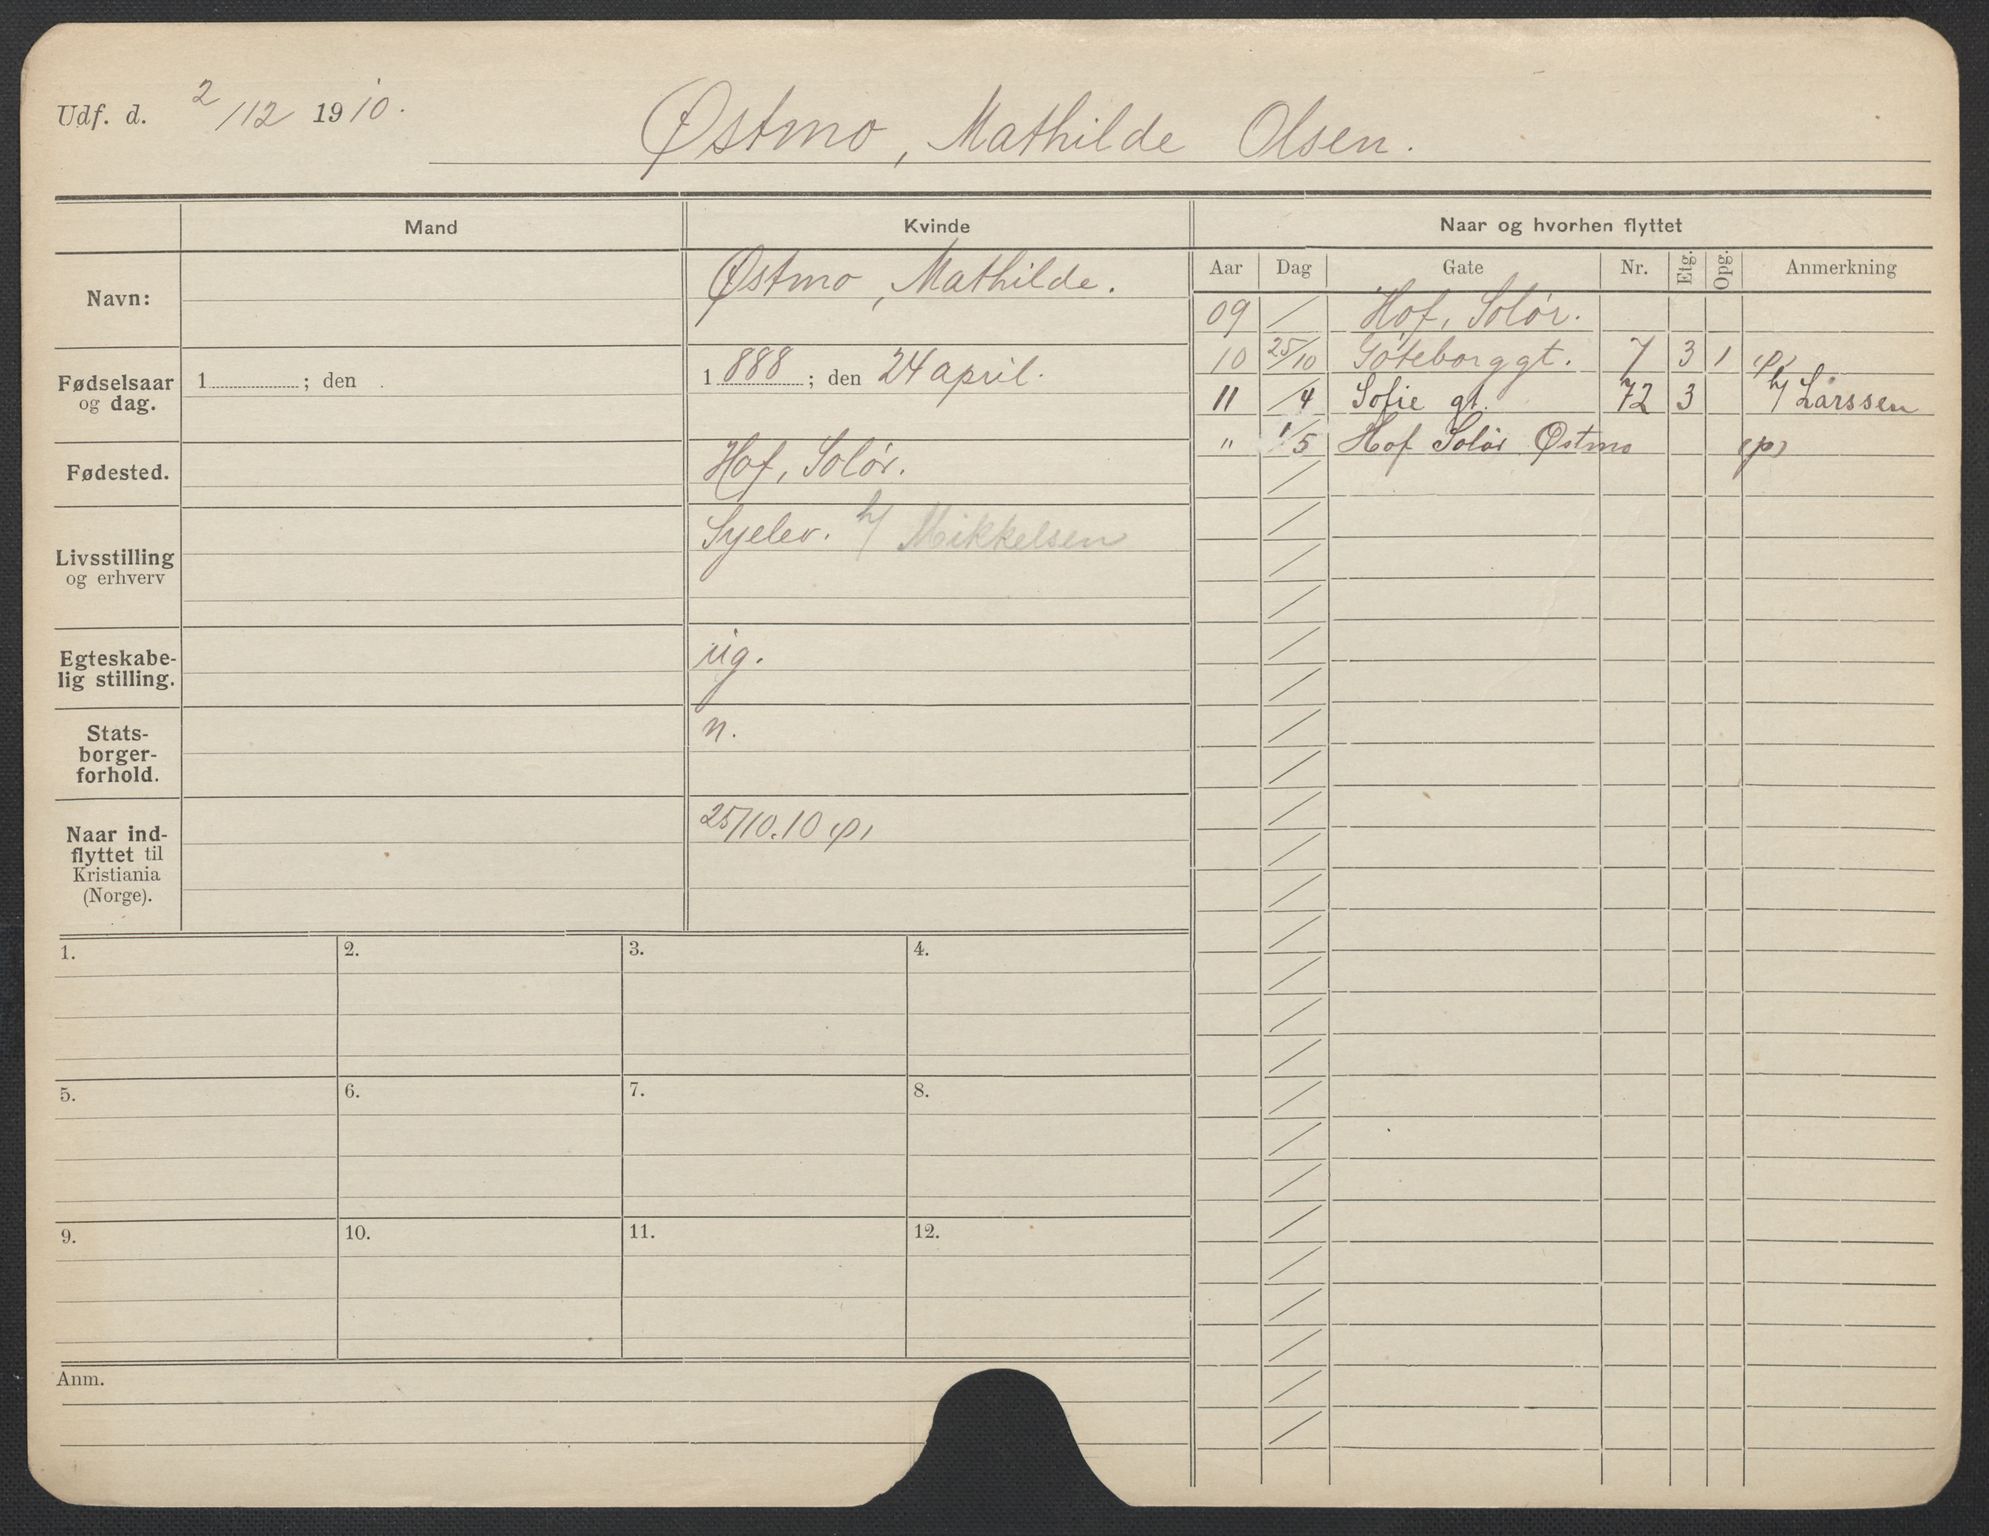 Udf. d. 2/12 1910.
Østmo, Mathilde Olsen.
Mand
Kvinde
Naar og hvorhen flyttet
Aar Dag Gate Nr. Etg. Opg. Anmerkning
Navn:
Østmo, Mathilde.
Fødselsaar
og dag.
1 ; den
1888 ; den 24 april.
Fødested.
Hof, Solør.
Livsstilling
og erhverv
Syelev. h/ Mikkelsen
Egteskabe-
lig stilling.
ug.
Stats-
borger-
forhold.
n.
Naar ind-
flyttet til
Kristiania
(Norge).
25/10.10 (p)
09 / Hof, Solør.
10 25/10 Gøteborggt. 7 3 1 (p)
11 /4 Sofie gt. 72 3 h/ Larssen
" 1/5 Hof Solør Østmo (p)
1. 2. 3. 4.
5. 6. 7. 8.
9. 10. 11. 12.
Anm.